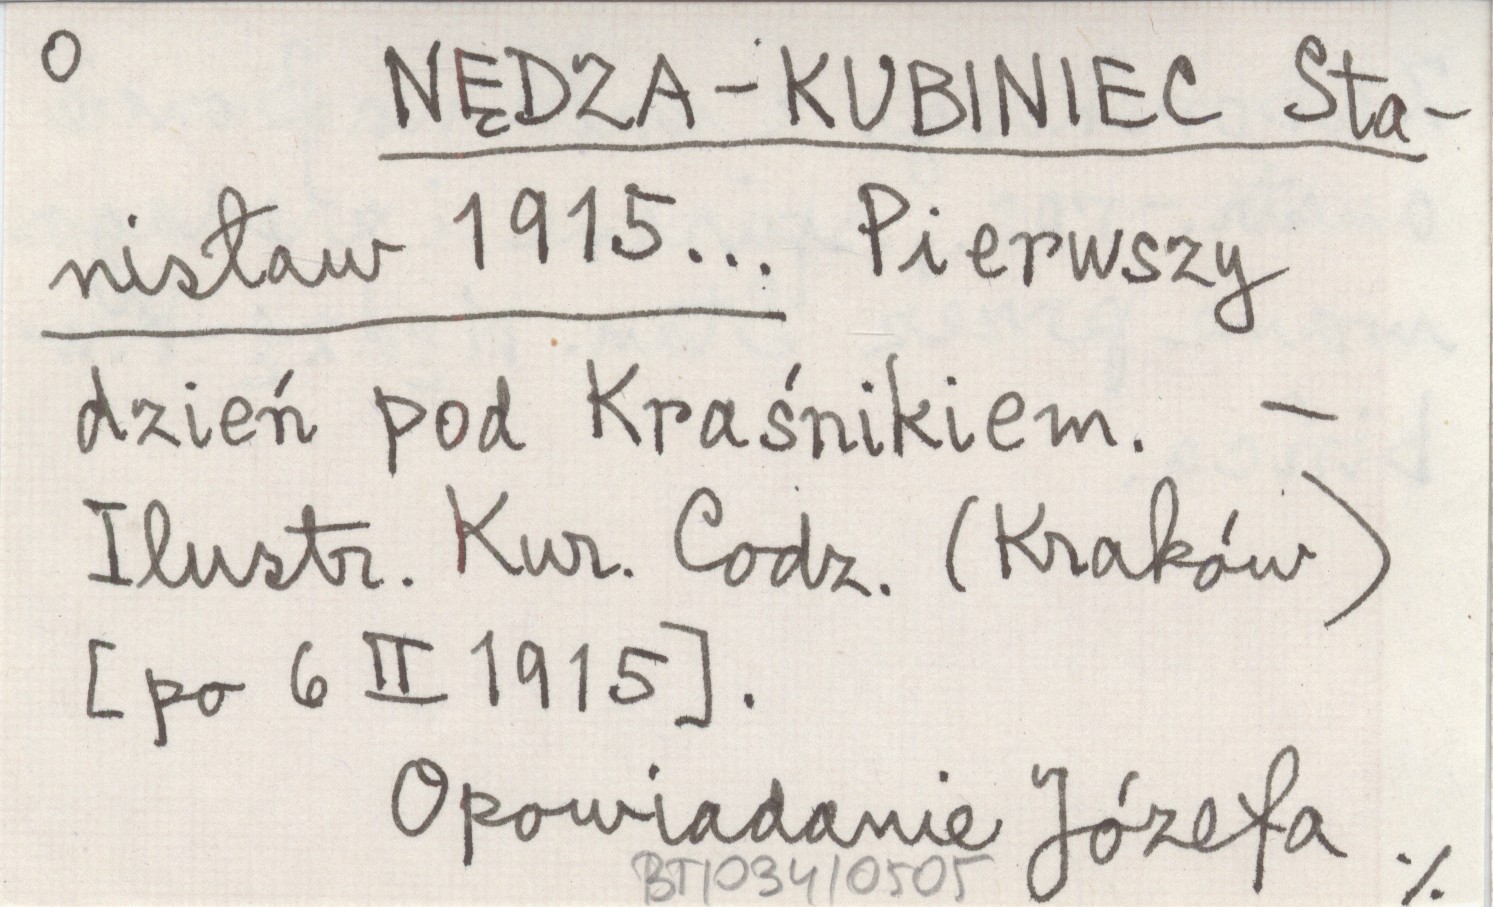 O NĘDZA-KUBINIEC Sta-
nisław 1915... Pierwszy
dzień pod Kraśnikiem. -
Ilustr. Kur. Codz. (Kraków)
[po 6 II 1915].
Opowiadanie Józefa ./.
BT/034/0505